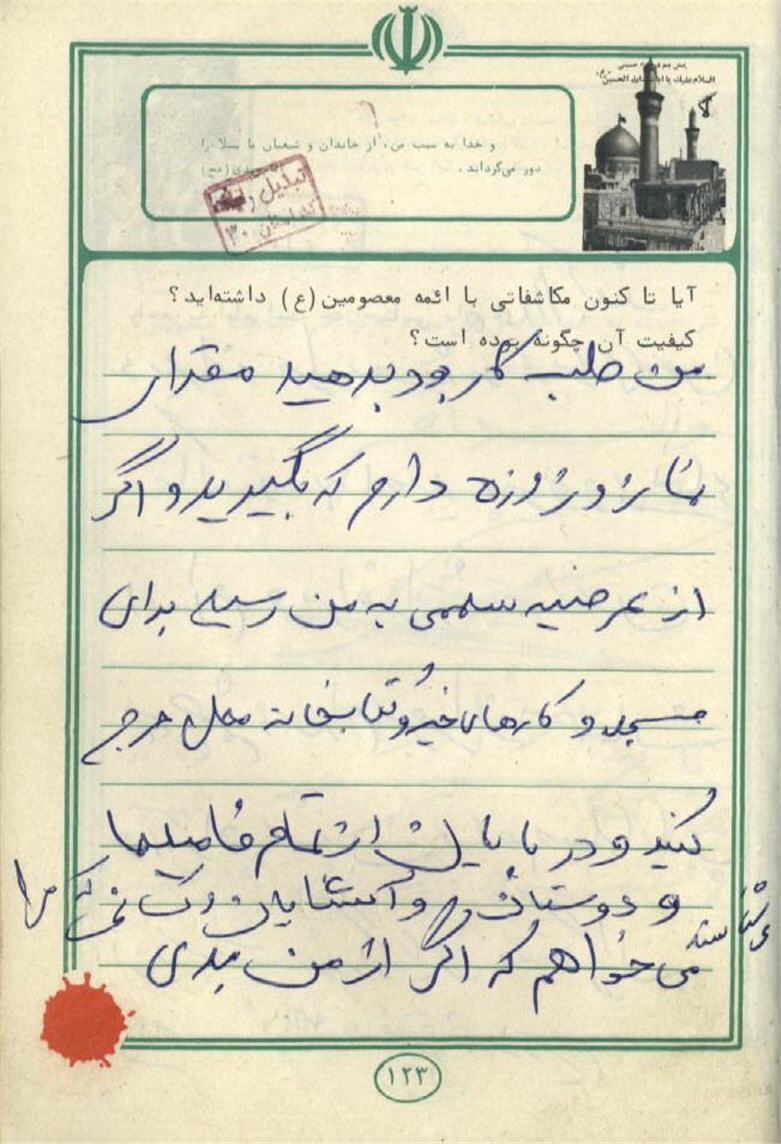 السلام علیک یا ابا عبدالله الحسین
و خدا به سبب من، از خاندان و شیعیان ما بلا را
دور می‌گرداند.
تبدیل
۳۰
آیا تا کنون مکاشفاتی با ائمه معصومین (ع) داشته‌اید؟
کیفیت آن چگونه بوده است؟
من طلب کار بود بدهید مقداری
نماز و روزه دارم که بگیرید و اگر
از عرضیه سهمی به من رسید برای
مسجد و کارهای خیر و کتابخانه محل خرج
کنید و در پایان از تمام فامیلها
و دوستان و آشنایان و کسانی که مرا
می‌شناسند
می‌خواهم که اگر از من بدی
۱۲۳